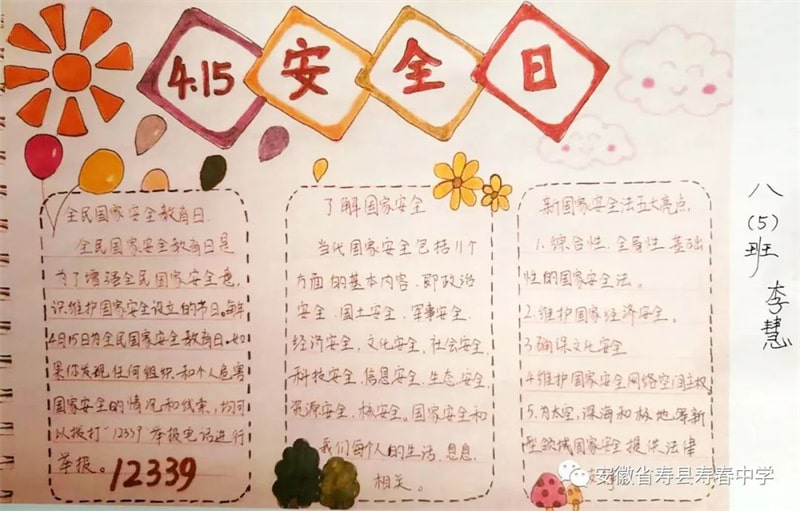 4.15 安全日
全民国家安全教育日.
全民国家安全教育日是
为了增强全民国家安全意
识.维护国家安全设立的节日。每年
4月15日为全民国家安全教育日.如
果你发现任何组织和个人危害
国家安全的情况和线索,均可
以拨打"12339"举报电话进行
举报。12339
了解国家安全
当代国家安全包括11个
方面的基本内容.即政治
安全.国土安全.军事安全.
经济安全.文化安全.社会安全.
科技安全.信息安全.生态安全.
资源安全.核安全。国家安全和
我们每个人的生活.息息
相关。
新国家安全法五大亮点.
1.综合性.全局性.基础
性的国家安全法。
2.维护国家经济安全。
3.确保文化安全
4.维护国家安全网络空间主权
5.为太空,深海和极地等新
型领域国家安全提供法律
八(5)班 李慧
安徽省寿县寿春中学